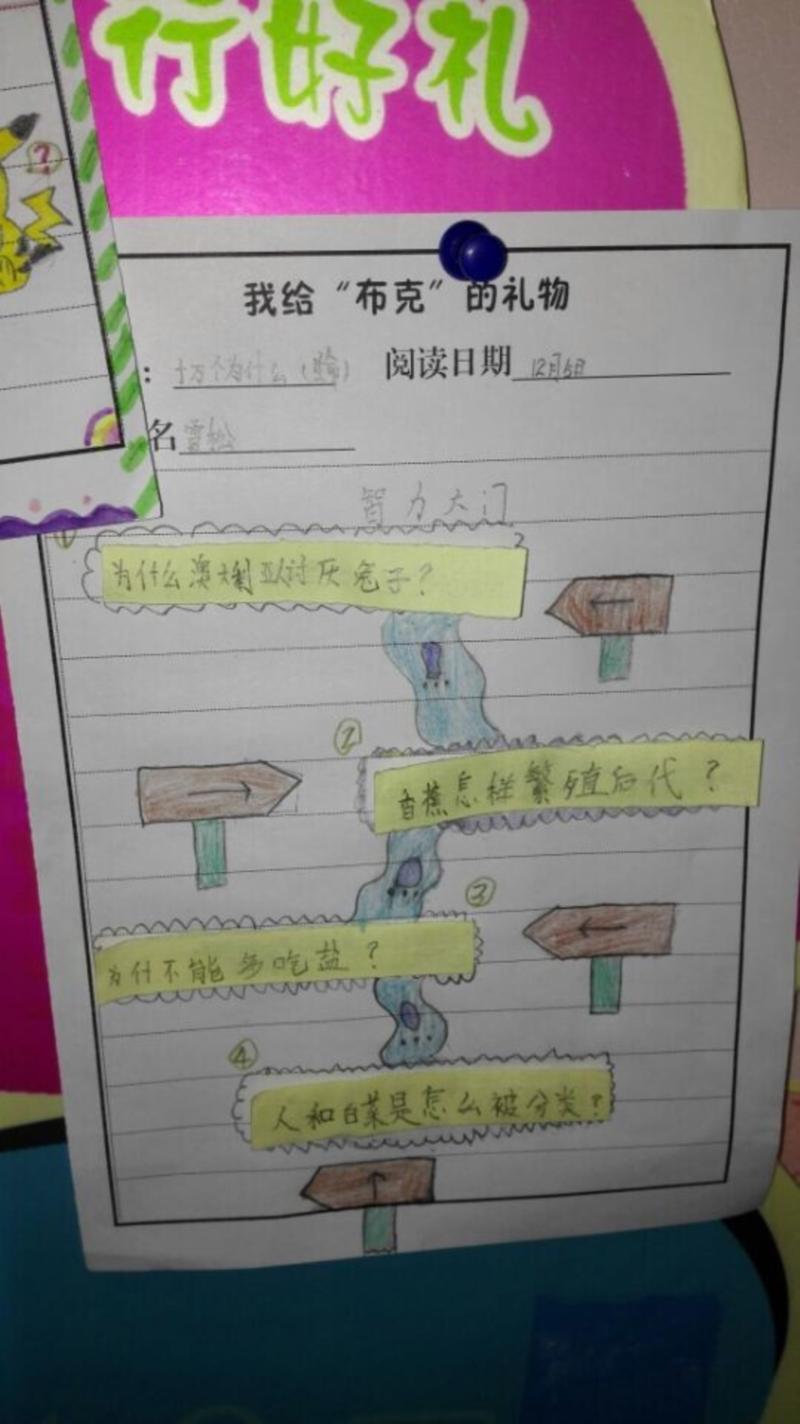 行好礼
?
我给“布克”的礼物
: 十万个为什么 阅读日期 12月5日
名 雪松
智力大门
为什么澳大利亚讨厌兔子?
②
香蕉怎样繁殖后代?
③
为什不能多吃盐?
④
人和白菜是怎么被分类?